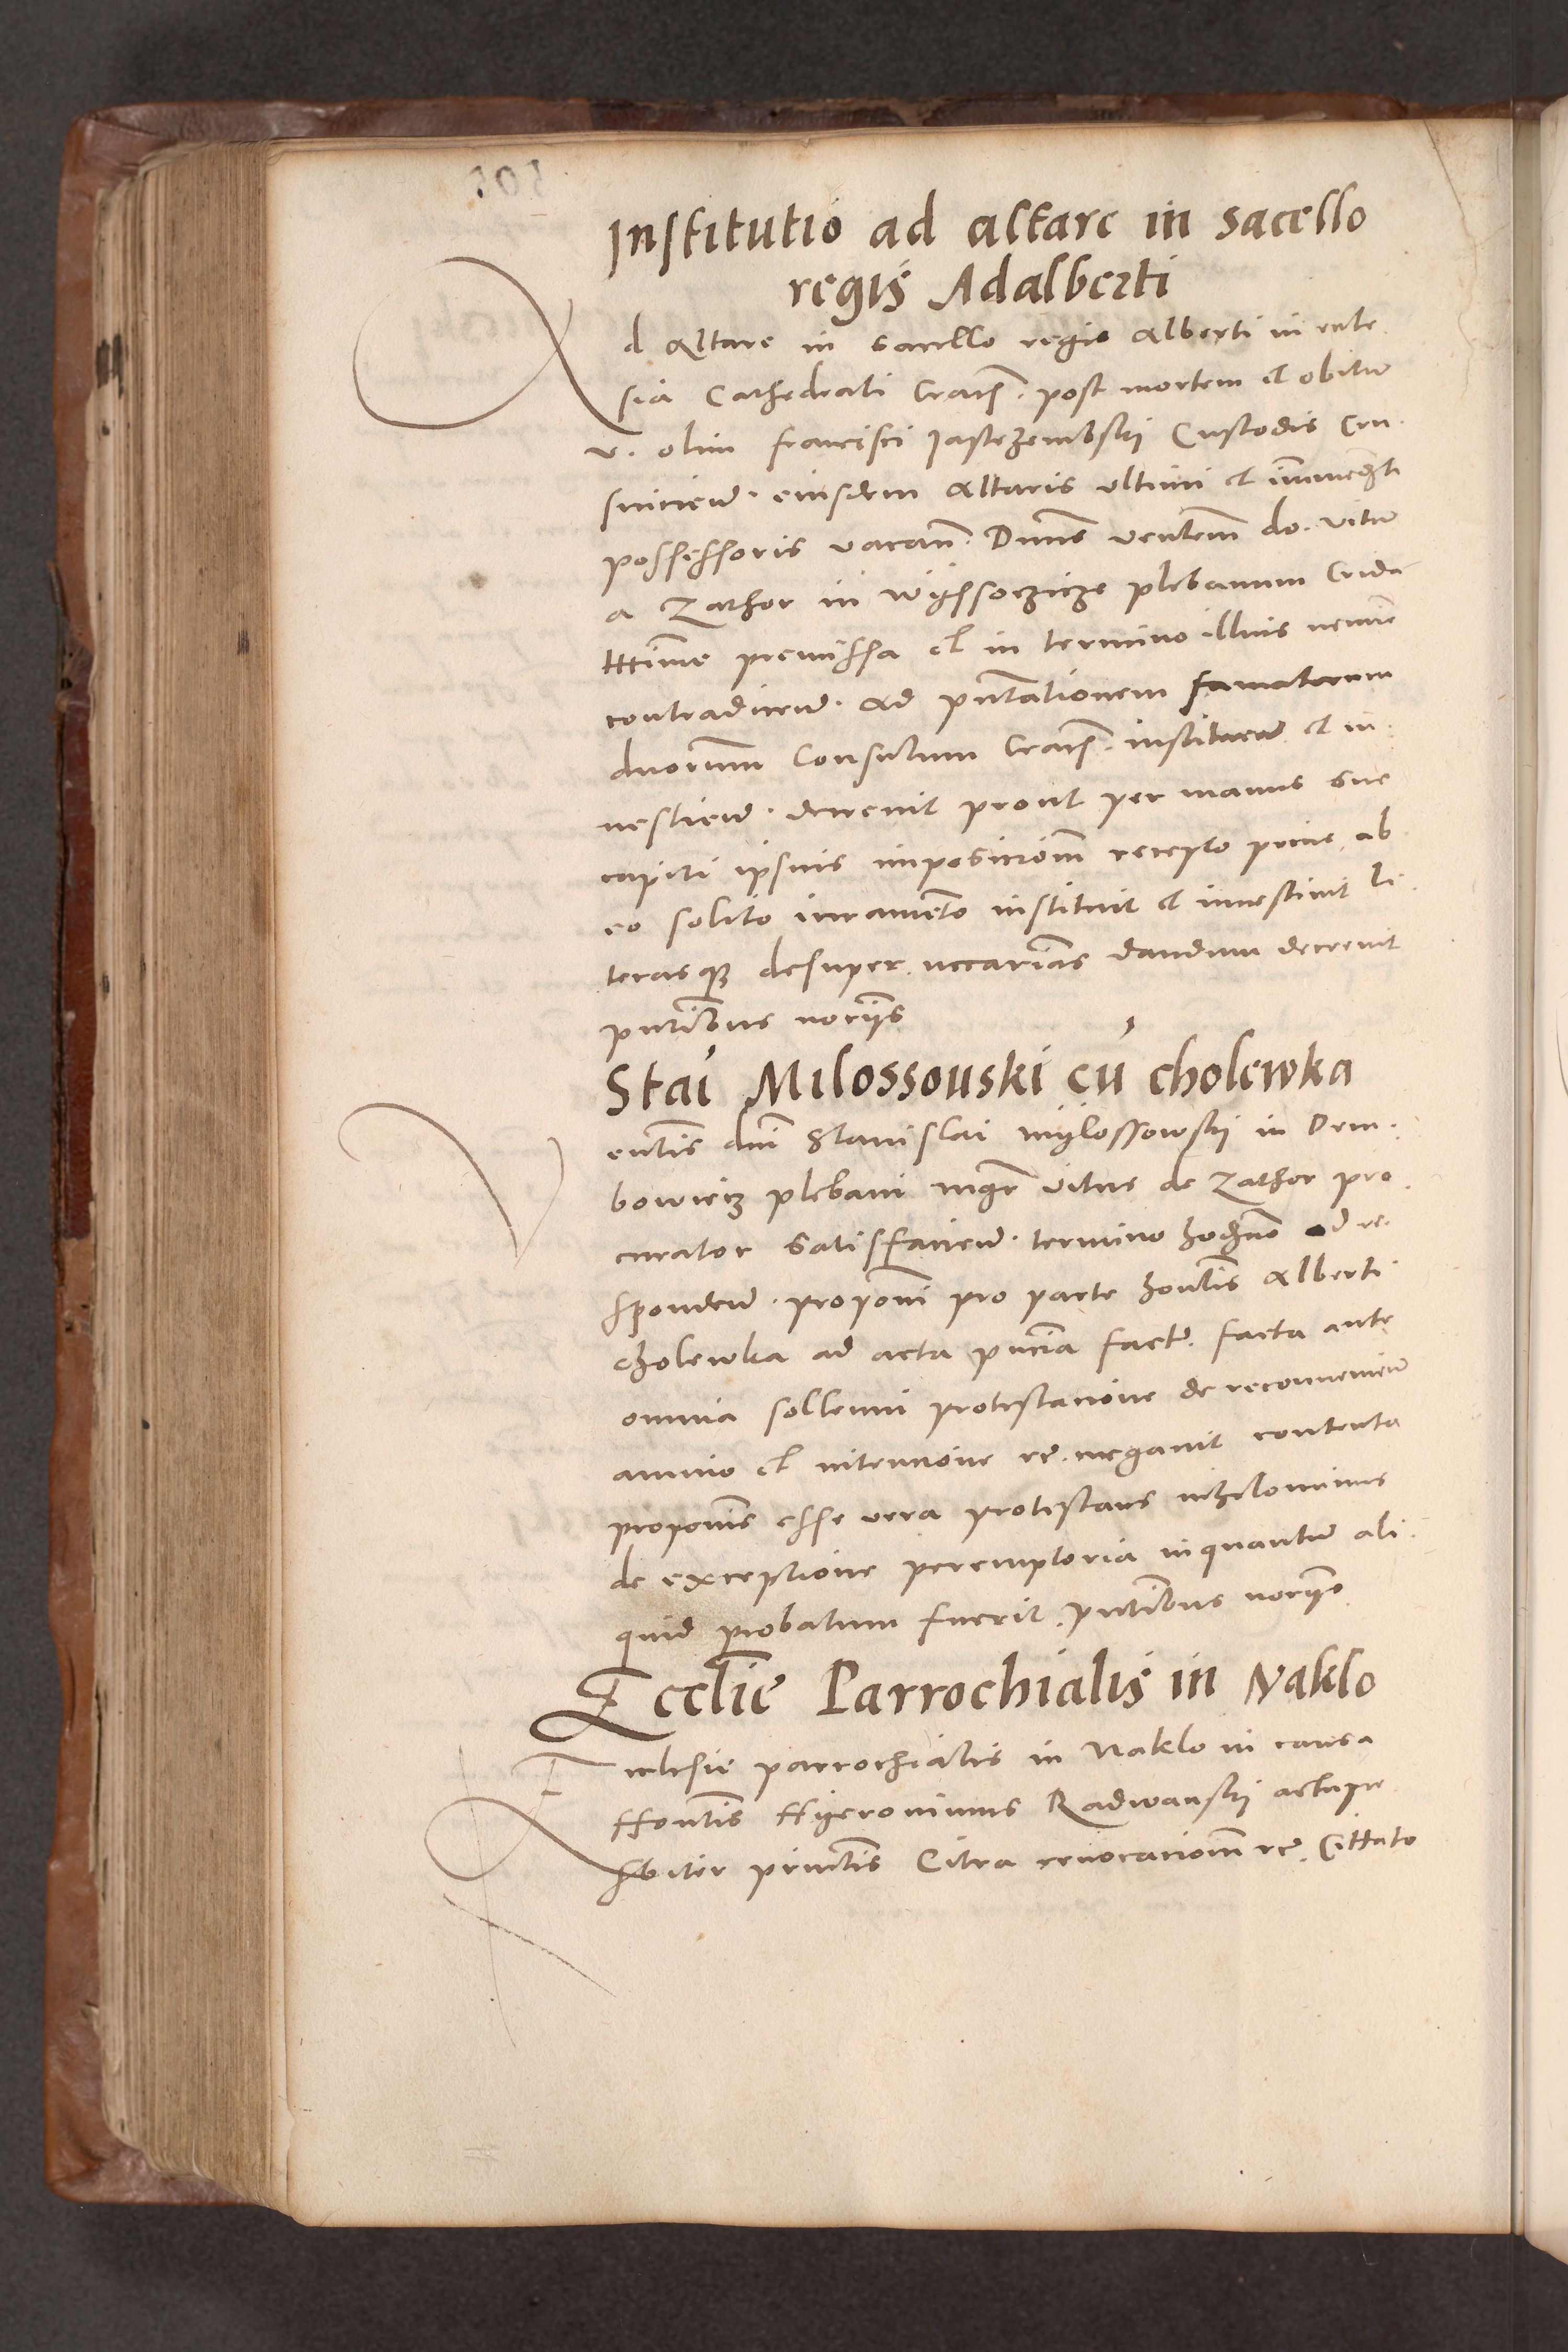 Institutio ad altare in sacello
regis Adalberti
Ad Altare in sacello regis Alberti in eccle
sia Cathedrali Crac̄. post mortem et obitum
v. olim francisci Jastrzembskij Custodis
eiusdem Altaris ultimi et immediati
possessoris vacan̄. Dnus ventem do. vitum
a Zathor in Wyssoczicze plebanum Crida
ttime premissa et in termino illius nemine
contradicen. ad pntationem famatorum
dnorum Consulum Crac̄. instituend et in
vestiend. decrevit prout per manus sue
capiti ipsius imposicionem recepto prius ab
eo solito iuramento instituit et investivit li
terasque desuper necarias dandum decrevit
pntibus norijs
Stai Milossouski cū cholewka
Ventis dni Stanislai mylossowskij in Dem
bowiecz plebani mgr vitus de Zathor pro
curator satisfacien. termino hodierno ad re
sponden. proponi pro parte hontis Alberti
cholewka ad acta pncia fact. facta ante
omnia sollenni protestacione de reconvenien
animo et intencione re. negavit contenta
proponis esse vera protestans nihilominus
de exceptione peremptoria inquantum ali
quid probatum fuerit. pntibus norijs
Ecclie Parrochialis in Naklo
Ecclesie parrochialis in Naklo in causa
hontis Hyeronimus Radwanskij
pructis Citra revocacionem re. Cittato